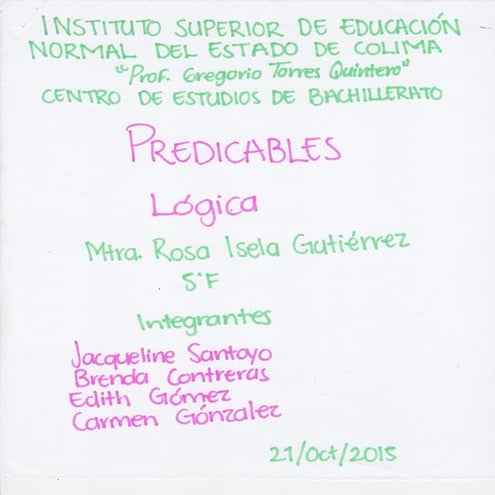 INSTITUTO SUPERIOR DE EDUCACIÓN
NORMAL DEL ESTADO DE COLIMA
"Prof. Gregorio Torres Quintero"
CENTRO DE ESTUDIOS DE BACHILLERATO
PREDICABLES
Lógica
Mtra. Rosa Isela Gutiérrez
5°F
Integrantes
Jacqueline Santoyo
Brenda Contreras
Edith Gómez
Carmen Gónzalez
21/Oct/2015